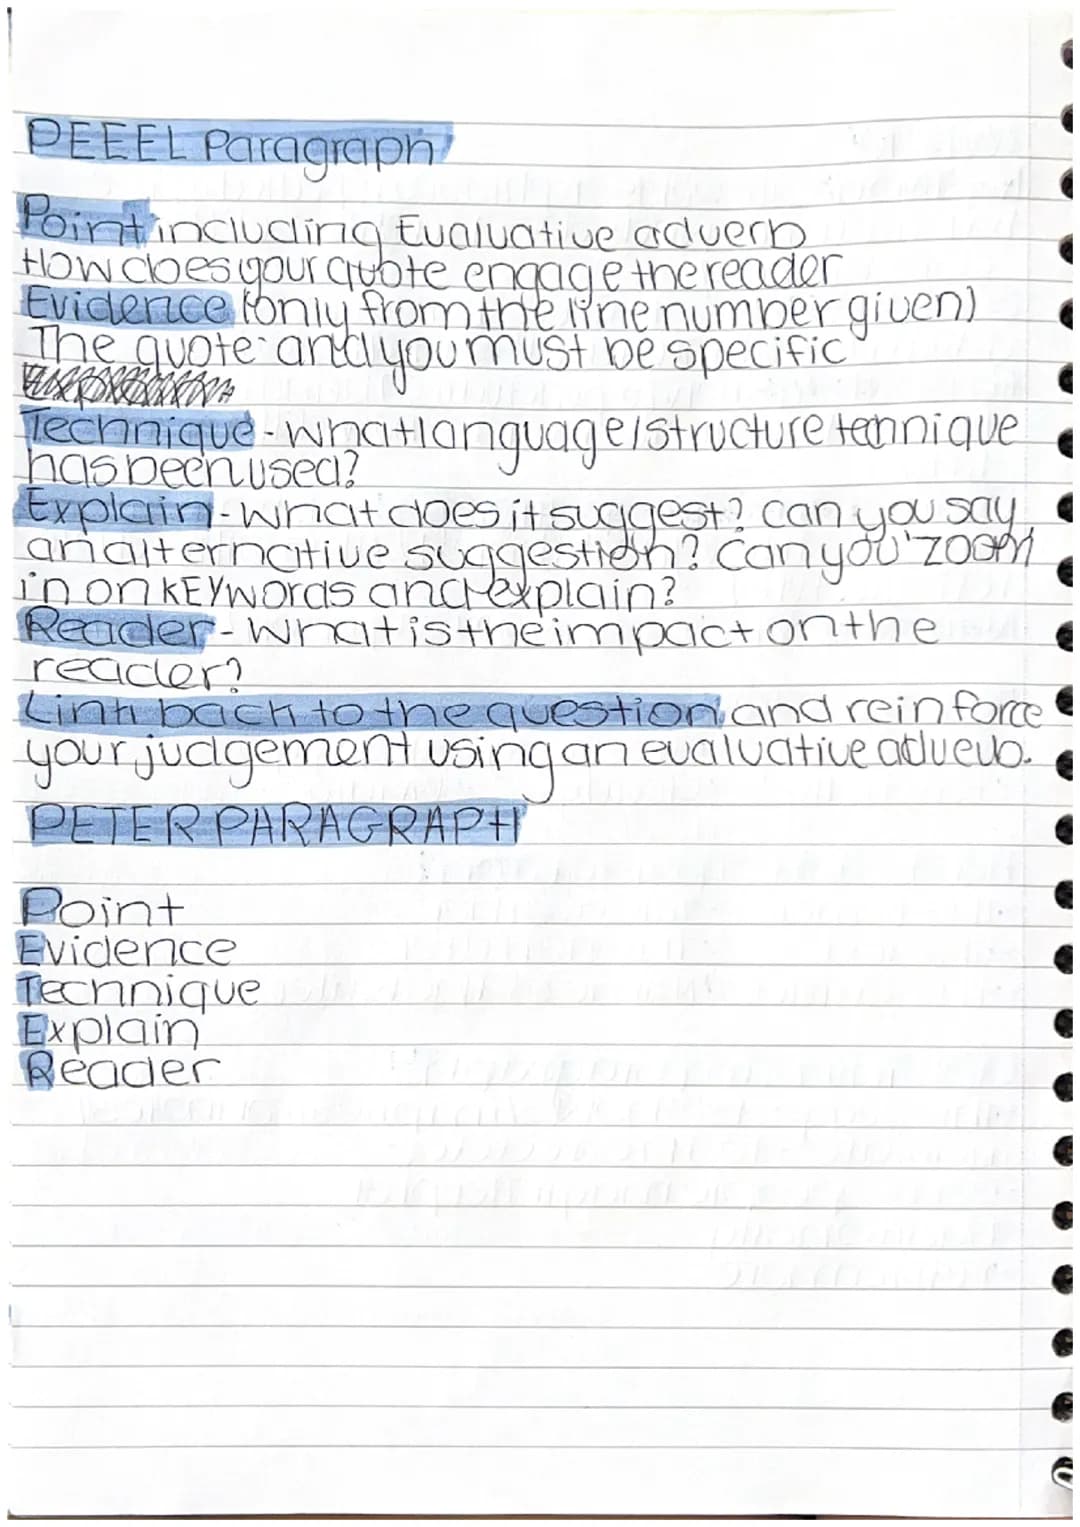 PEEEL Paragraph
Point including Evaluative adverb
How does your quote engage the reader
Evidence (only from the line number given)
The quote and you must be specific
Technique - what language/structure technique
has been used?
Explain - what does it suggest? can you say
an alternative suggestion? Can you 'zoom
in on KEYwords and explain?
Reader - what is the impact on the
reader?
Link back to the question and reinforce
your judgement using an evaluative adverb.
PETER PARAGRAPH
Point
Evidence
Technique
Explain
Reader